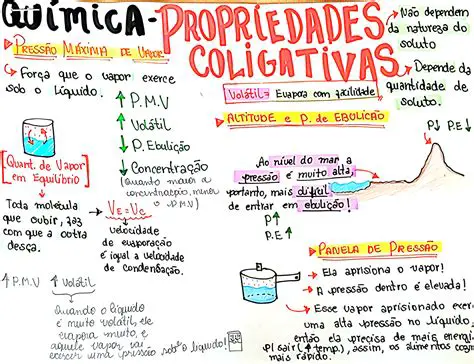 QUÍMICA - PROPRIEDADES
COLIGATIVAS
Não dependem
da natureza do
soluto
Depende da
quantidade de
soluto.
PRESSÃO MÁXIMA DE VAPOR
Força que o vapor exerce
sob o líquido.
↑ P.M.V
↑ Volátil
↓ P. Ebulição
↓ Concentração
(Quanto maior a
concentração, menor
o P.M.V)
Quant. de Vapor
em Equilíbrio
Toda molécula
que subir, faz
com que a outra
desça.
VE = VC
velocidade
de evaporação
é igual a velocidade
de condensação.
↑ P.M.V ↑ Volátil
Quando o líquido
é muito volátil, ele
evapora muito, e
aquele vapor vai
exercer uma pressão sob o líquido!
Volátil = Evapora com facilidade
ALTITUDE E P. DE EBULIÇÃO
P↓ P.E↓
Ao nível do mar a
pressão é muito alta,
portanto, mais difícil
de entrar em ebulição!
P↑
P.E↑
PANELA DE PRESSÃO
Ela aprisiona o vapor!
A pressão dentro é elevada!
Esse vapor aprisionado exerce
uma alta pressão no líquido,
então ele precisa de mais
P/ sair (↑ temp.), assim, os alimentos
mais rápido.